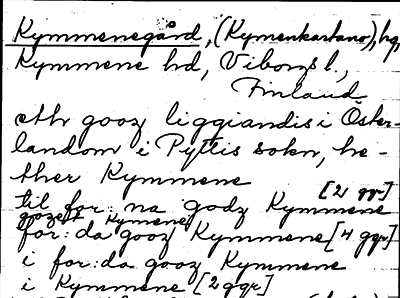 Kymmenegård, (Kymenkartano), hg,
Kymmene hd, Viborgs l.,
Finland
eth gooz liggiandis i Öster-
landom i Pyttis sokn, he-
ther Kymmene
[2 ggr]
til for: na godz Kymmene
gozet Kymmene
for: da gooz Kymmene [4 ggr]
i for: da gooz Kymmene
i Kymmene [2 ggr]